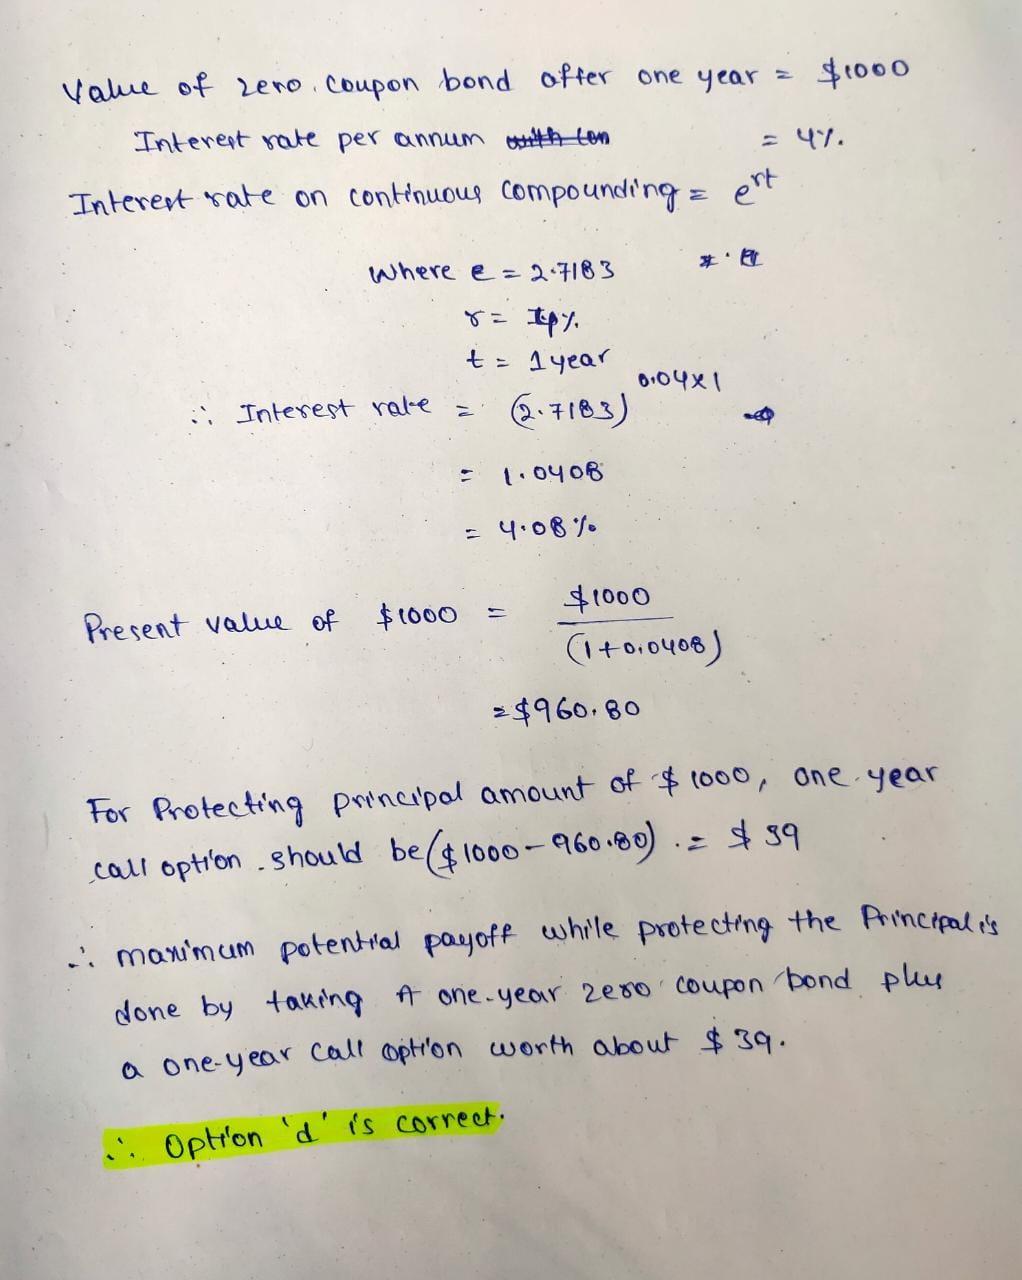 Value of zero coupon bond after one year = $1000
Interest rate per annum = 4%.
Interest rate on continuous compounding = e^rt
Where e = 2.7183
r = %.
t = 1 year
∴ Interest rate = (2.7183)^0.04×1
= 1.0408
= 4.08%
Present value of $1000 = $1000
(1+0.0408)
= $960.80
For Protecting principal amount of $1000, one year
call option should be ($1000-960.80) = $39
∴ maximum potential payoff while protecting the Principal is
done by taking A one-year zero coupon bond plus
a one-year call option worth about $39.
∴ Option 'd' is correct.